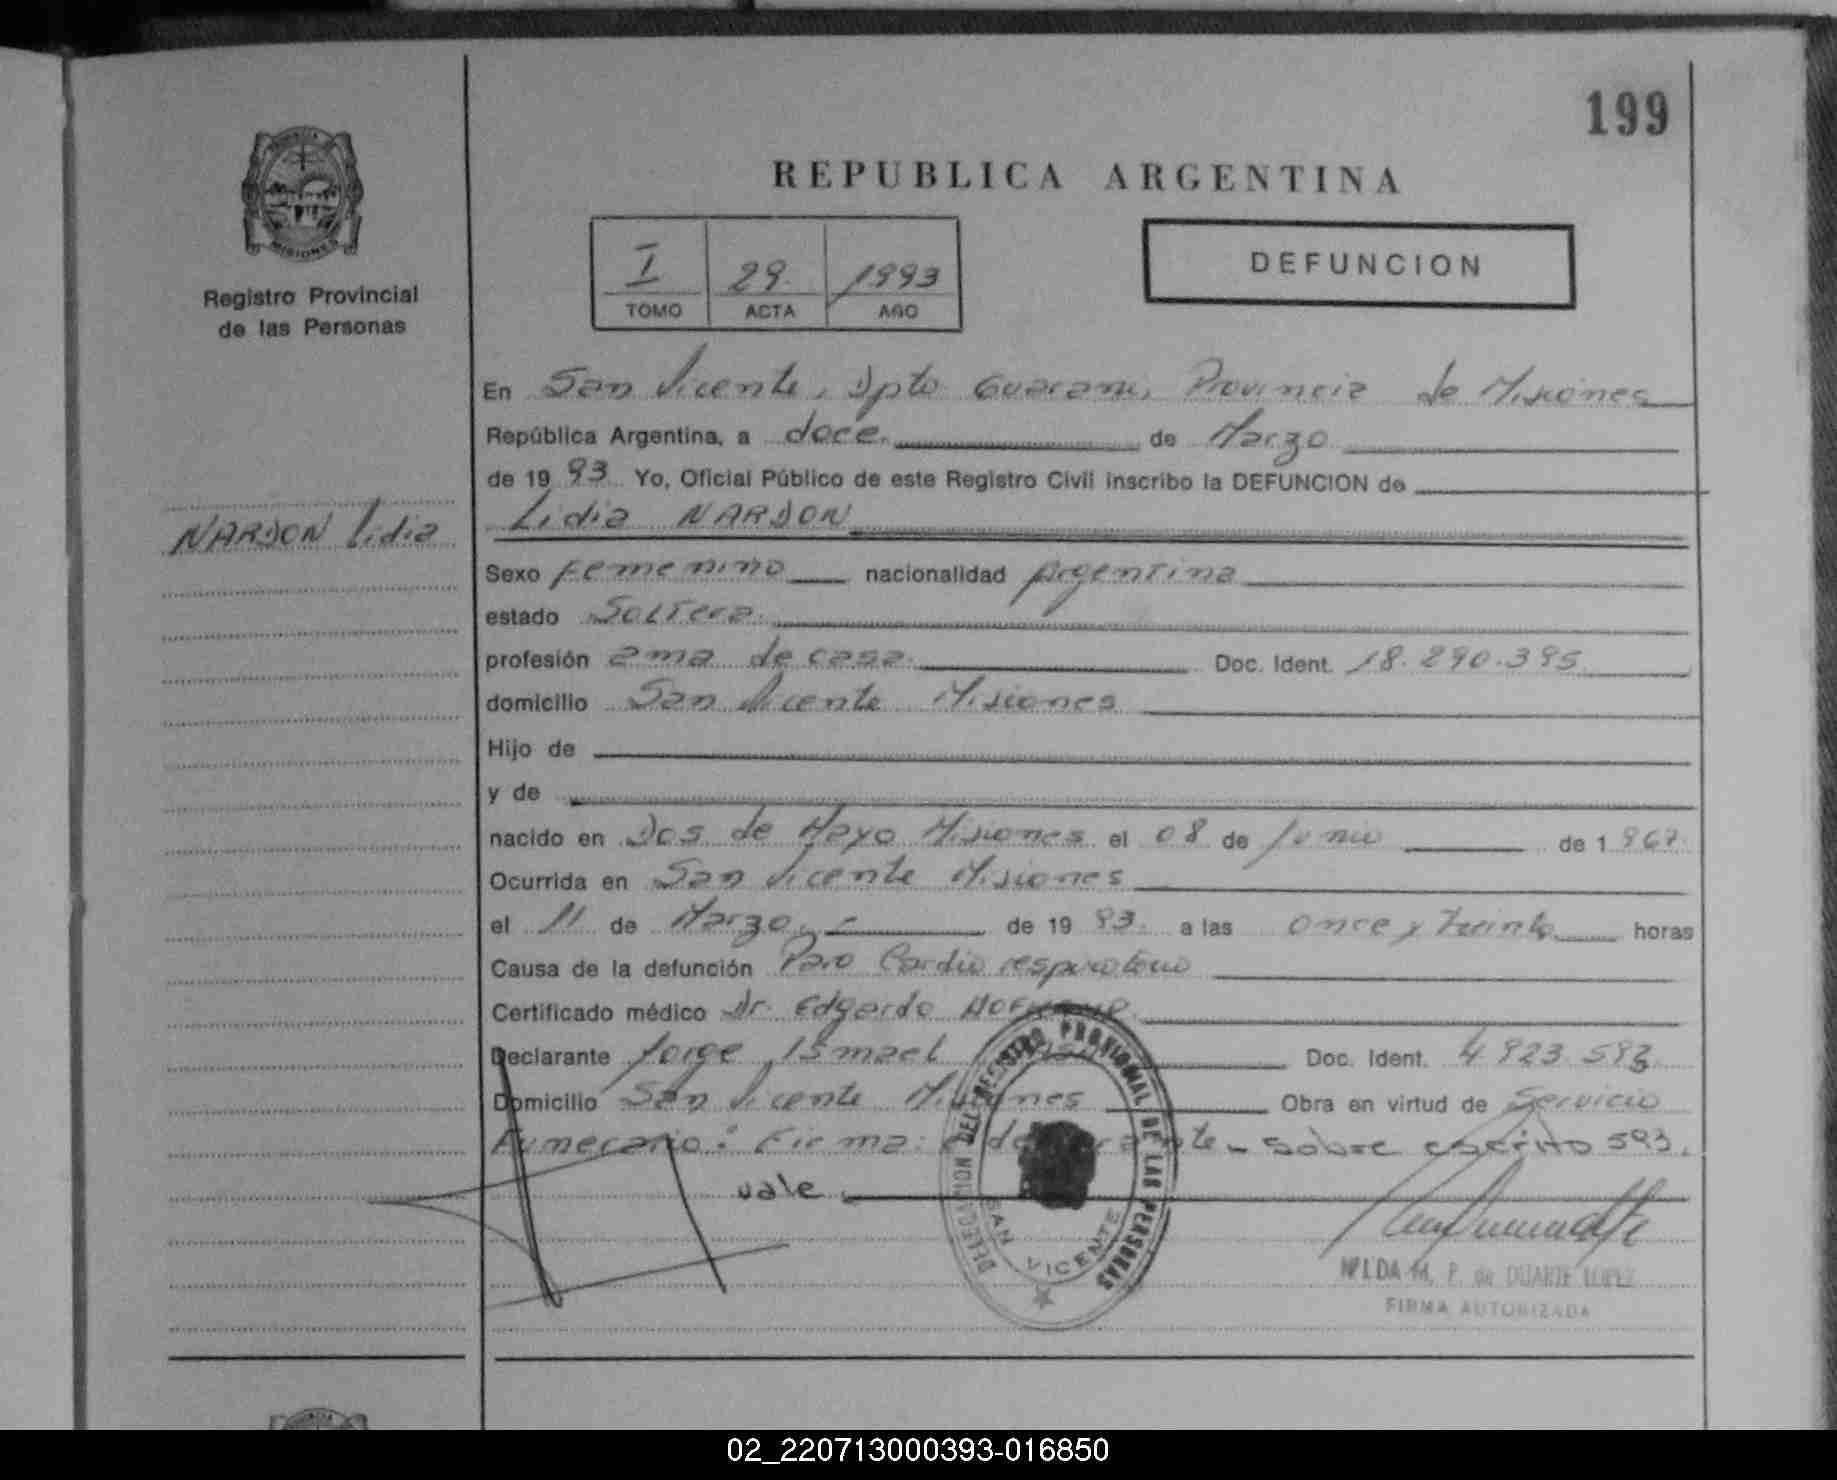 199
MISIONES
Registro Provincial
de las Personas
REPUBLICA ARGENTINA
I 29. 1993
TOMO ACTA AÑO
DEFUNCION
En San Vicente, Dpto Guarani, Provincia de Misiones
República Argentina, a doce. de Marzo
de 19 93 Yo, Oficial Público de este Registro Civil inscribo la DEFUNCION de
NARDON Lidia
Lidia NARDON
Sexo femenino nacionalidad Argentina
estado Soltera.
profesión ama de casa. Doc. Ident. 18.290.395
domicilio San Vicente Misiones
Hijo de
y de
nacido en Dos de Mayo Misiones el 08 de Junio de 1 967.
Ocurrida en San Vicente Misiones
el 11 de Marzo. de 19 93. a las once y Treinta horas
Causa de la defunción Paro Cardio respiratorio
Certificado médico Dr. Edgardo
Declarante Jorge Ismael Doc. Ident. 4.923.593
Domicilio San Vicente Misiones Obra en virtud de Servicio
Funerario: Firma: declarante - sobre escrito 593.
vale
DELEGACION DEL REGISTRO PROVINCIAL DE LAS PERSONAS
SAN VICENTE
NILDA M. P. de DUARTE LOPEZ
FIRMA AUTORIZADA
02_220713000393-016850